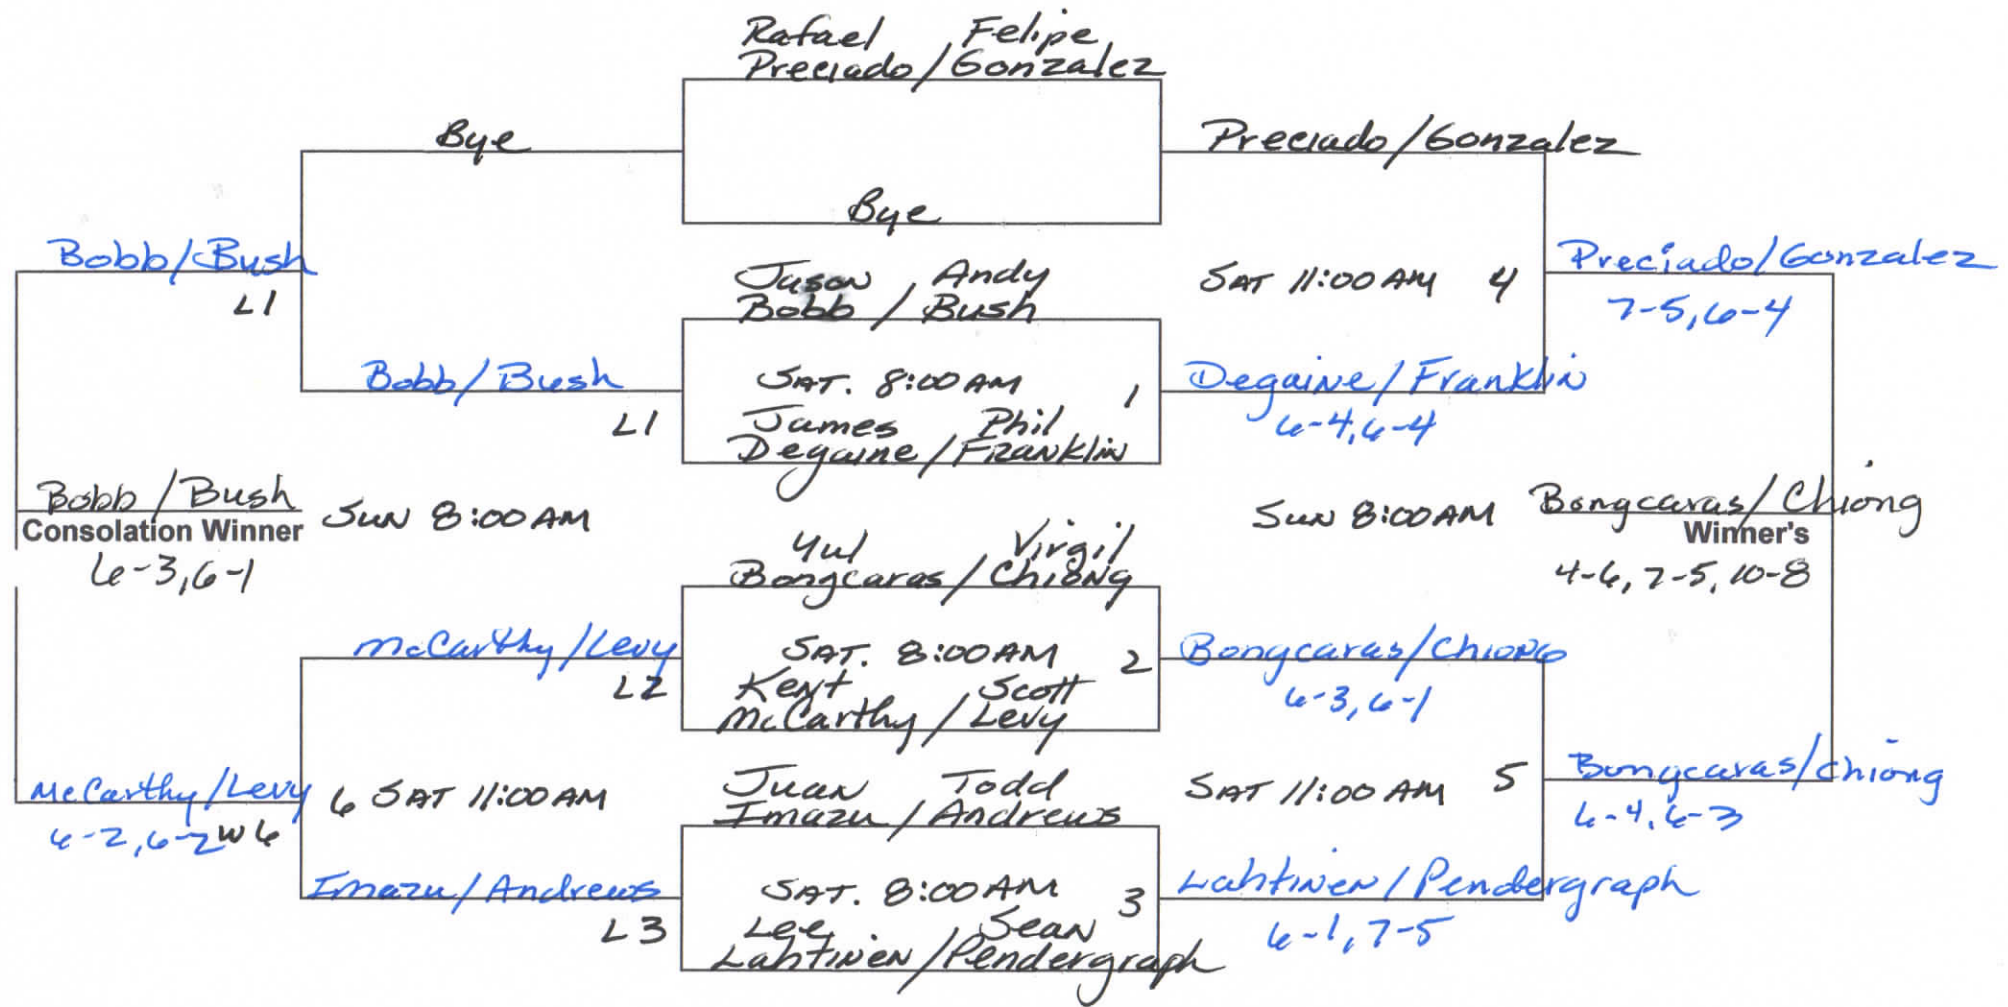 Rafael Felipe
Preciado/Gonzalez
Bye
Preciado/Gonzalez
Bye
Bobb/Bush
L1
Jason Andy
Bobb / Bush
SAT 11:00 AM 4
Preciado/Gonzalez
7-5, 6-4
Bobb/Bush
L1
SAT. 8:00 AM 1
James Phil
Degaine/Franklin
Degaine/Franklin
6-4, 6-4
Bobb/Bush
Consolation Winner
6-3, 6-1
SUN 8:00 AM
SUN 8:00 AM
Bongcaras/Chiong
Winner's
4-6, 7-5, 10-8
Yul Virgil
Bongcaras/Chiong
McCarthy/Levy
L2
SAT. 8:00 AM 2
Kent Scott
McCarthy/Levy
Bongcaras/Chiong
6-3, 6-1
McCarthy/Levy
6-2, 6-2 W6
6 SAT 11:00 AM
Juan Todd
Imazu/Andrews
SAT 11:00 AM 5
Bongcaras/Chiong
6-4, 6-3
Imazu/Andrews
L3
SAT. 8:00 AM 3
Lee Sean
Lahtinen/Pendergraph
Lahtinen/Pendergraph
6-1, 7-5